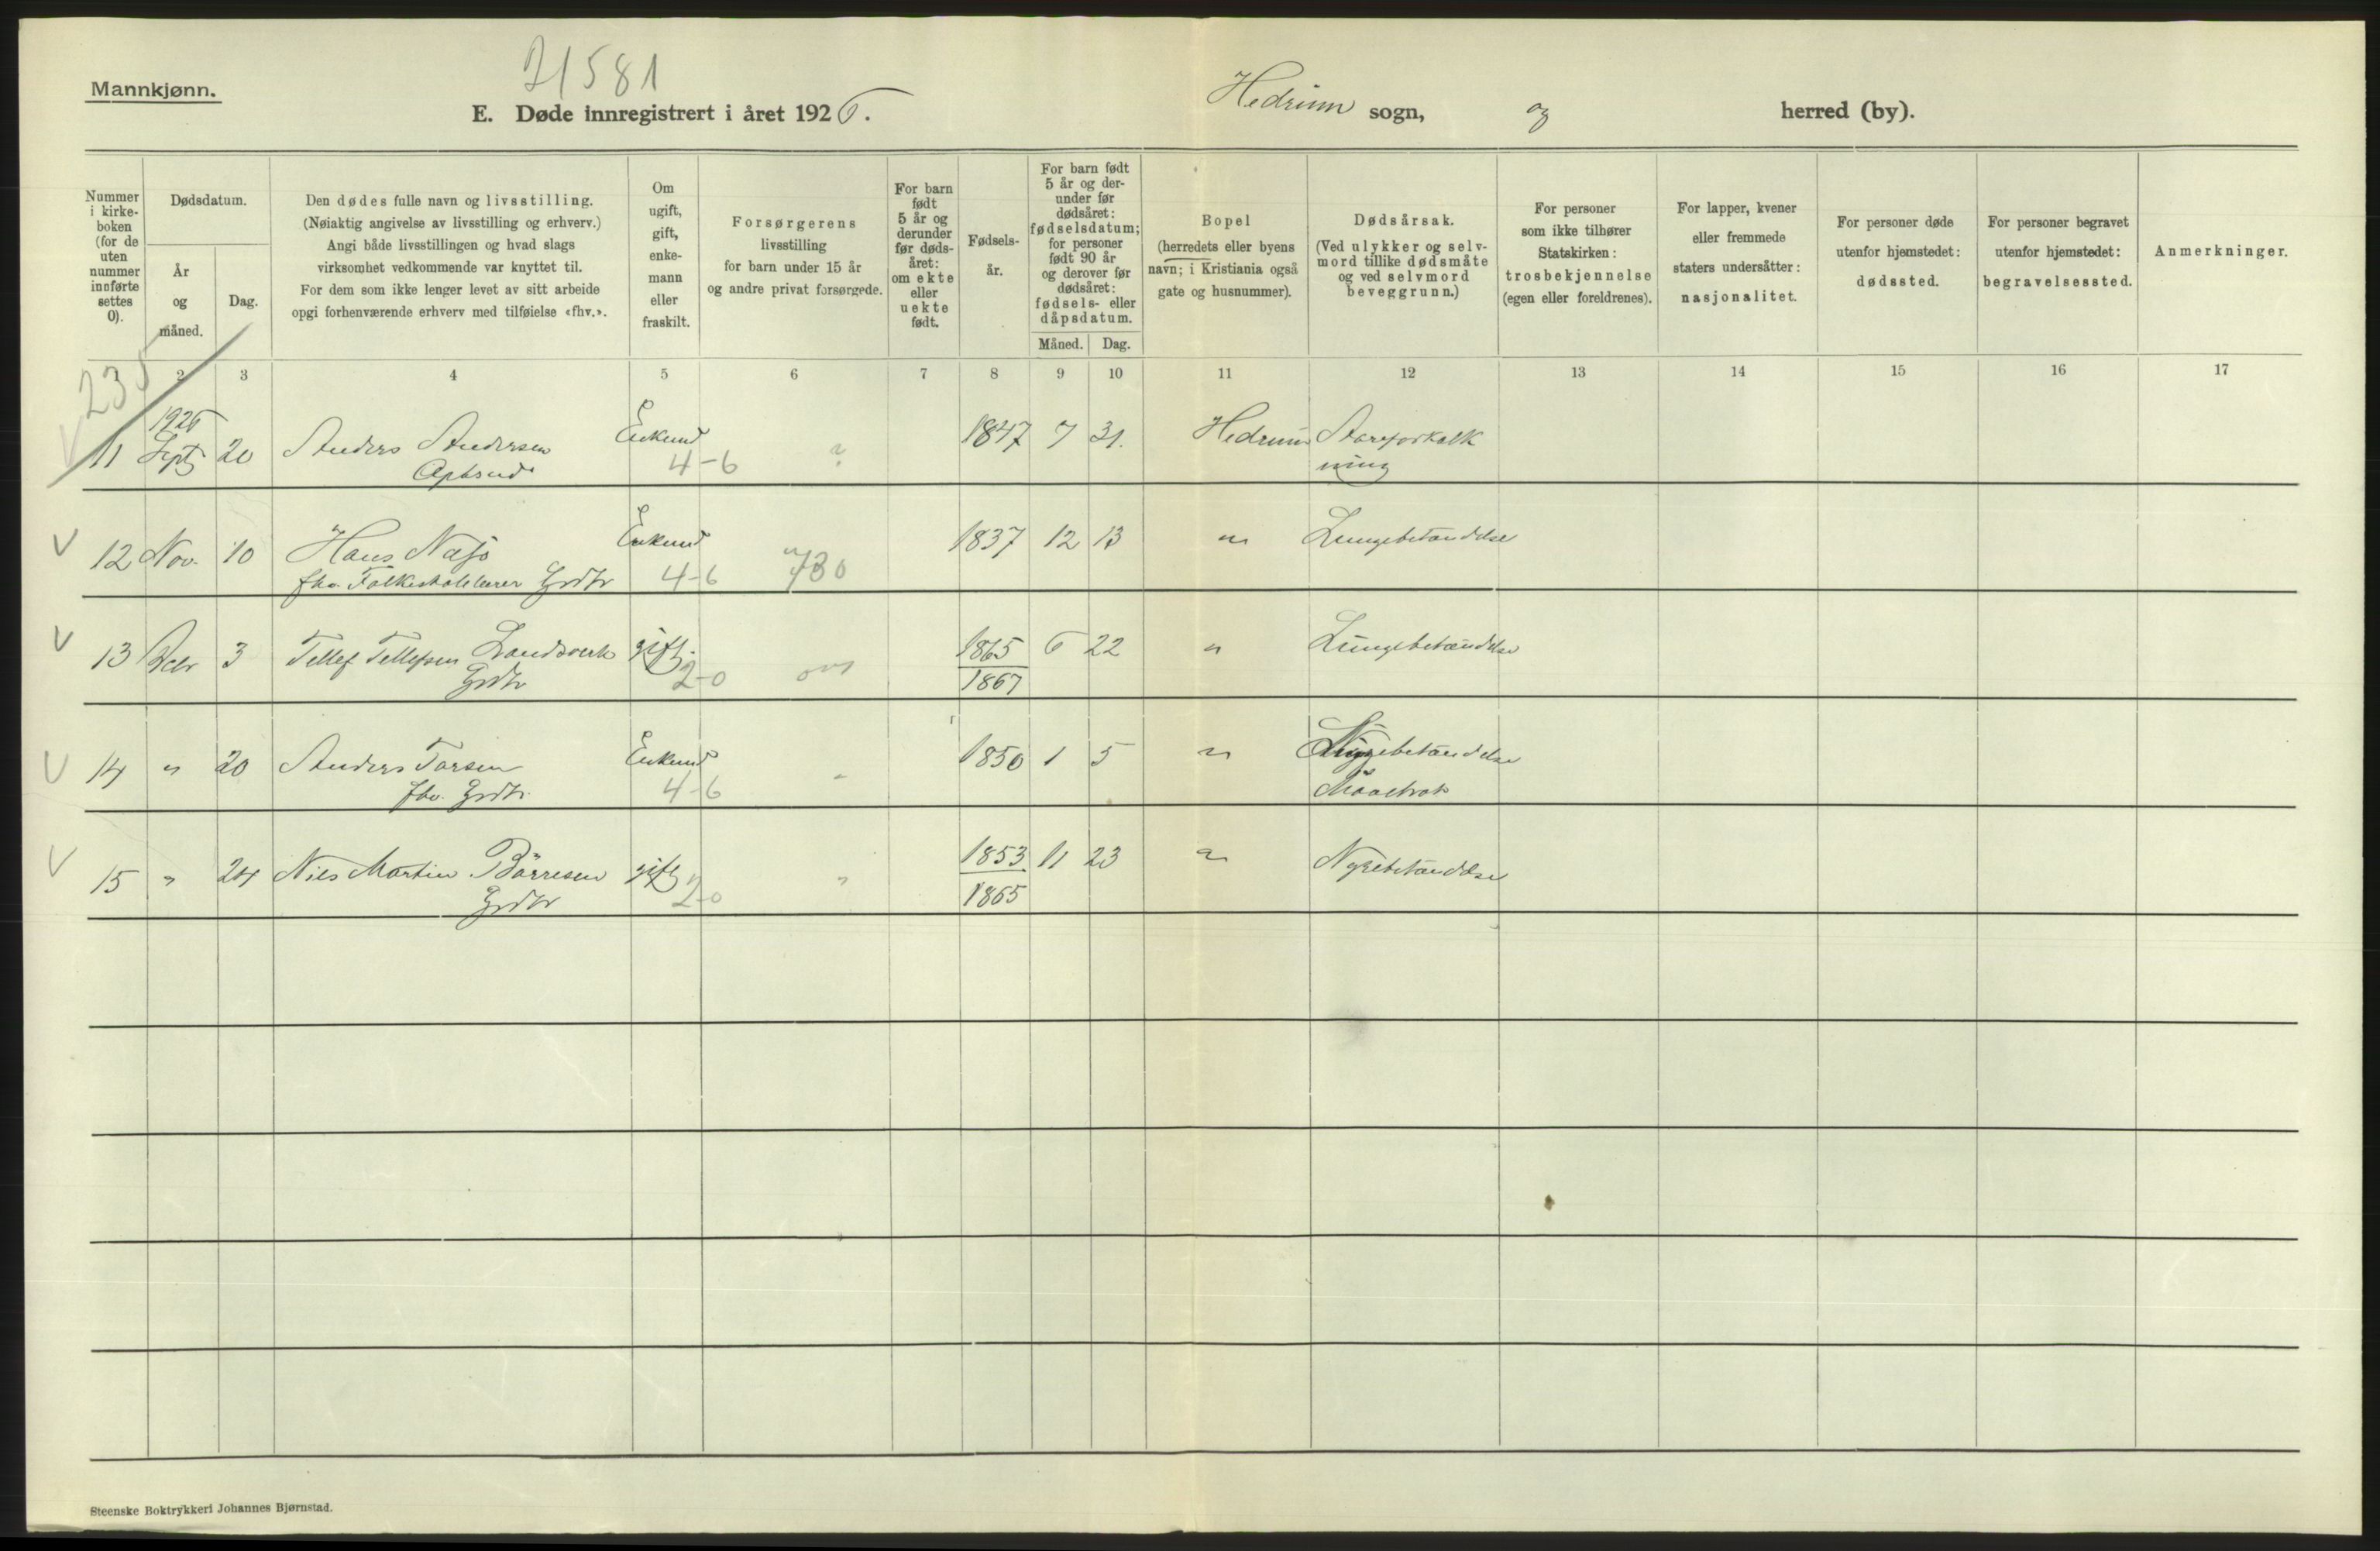 21581
Mannkjønn.
E. Døde innregistrert i året 1926. Hedrum sogn, og herred (by).
Nummer i kirke- boken (for de uten nummer innførte settes 0).
Dødsdatum.
År og måned.
Dag.
Den dødes fulle navn og livsstilling.
(Nøiaktig angivelse av livsstilling og erhverv.)
Angi både livsstillingen og hvad slags
virksomhet vedkommende var knyttet til.
For dem som ikke lenger levet av sitt arbeide
opgi forhenværende erhverv med tilføielse «fhv.».
Om ugift, gift, enke- mann eller fraskilt.
Forsørgerens
livsstilling
for barn under 15 år
og andre privat forsørgede.
For barn født 5 år og derunder før døds- året: om ekte eller uekte født.
Fødsels- år.
For barn født 5 år og der- under før dødsåret: fødselsdatum; for personer født 90 år og derover før dødsåret: fødsels- eller dåpsdatum.
Måned. Dag.
Bopel
(herredets eller byens
navn; i Kristiania også
gate og husnummer).
Dødsårsak.
(Ved ulykker og selv-
mord tillike dødsmåte
og ved selvmord
beveggrunn.)
For personer
som ikke tilhører
Statskirken:
trosbekjennelse
(egen eller foreldrenes).
For lapper, kvener
eller fremmede
staters undersåtter:
nasjonalitet.
For personer døde
utenfor hjemstedet:
dødssted.
For personer begravet
utenfor hjemstedet:
begravelsessted.
Anmerkninger.
1 2 3 4 5 6 7 8 9 10 11 12 13 14 15 16 17
235
1926
11 Sept 20 Anders Andersen Enkem 1847 7 31. Hedrum Aareforkalk
4-6 ? ning
V 12 Nov. 10 Hans Næsjø Enkem 1837 12 13 " Lungebetændelse
fhv. Folkeskolelærer Grdbr 4-6 730
V 13 Decbr 3 Tellef Tellefsen Landsverk gift. 1865 6 22 " Lungebetændelse
Grdbr 2-0 1867
V 14 " 20 Anders Torsen Enkem 1850 1 5 "
fhv. Grdbr. 4-6
V 15 " 24 Nils Martin Børresen gift 1853 11 23 " Nyrebetændelse
Grdbr 2-0 " 1865
Steenske Boktrykkeri Johannes Bjørnstad.